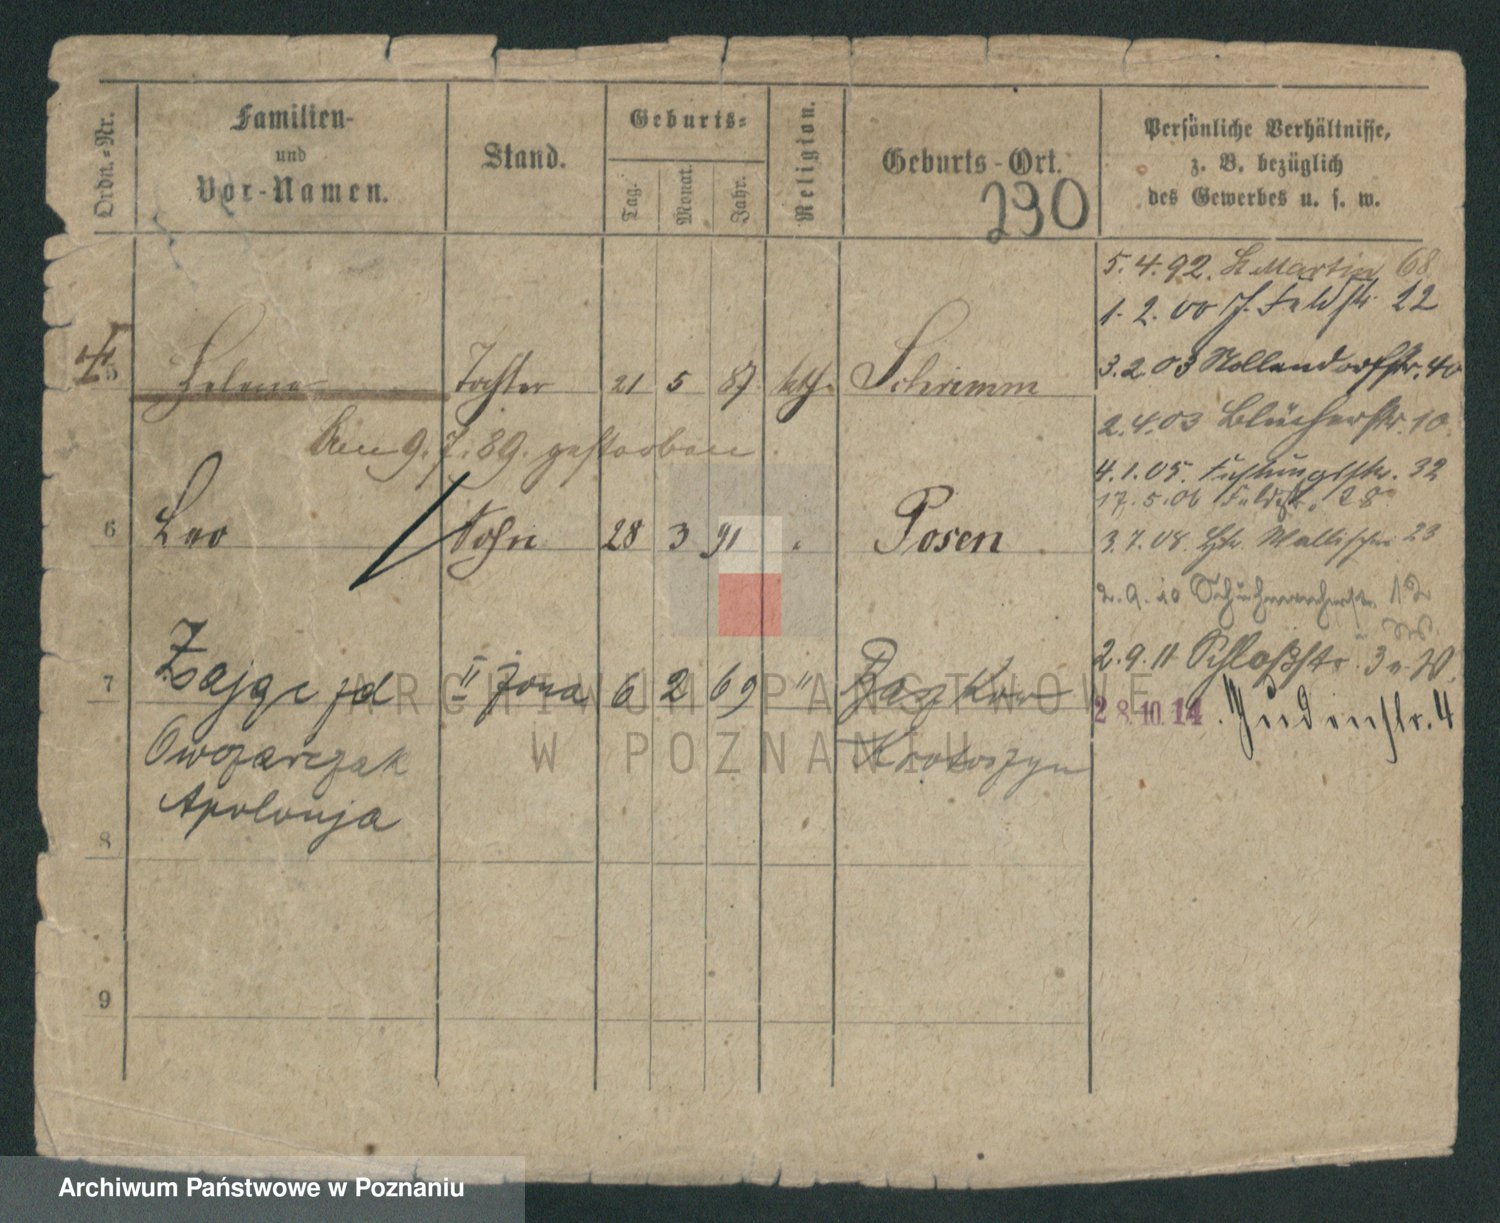 Ordn.-Nr.
Familien-
und
Vor-Namen.
Stand.
Geburts-
Tag.
Monat.
Jahr.
Religion.
Geburts-Ort.
Persönliche Verhältnisse,
z. B. bezüglich
des Gewerbes u. s. w.
230
5.4.92. St Martin 68
1.2.00 Feldstr 22
3.2.03 Nollendorfstr. 40
2.4.03 Blücherstr. 10
4.1.05. 32
17.5.06 Feldstr. 28
3.7.08. Wallischei 23
2.9.10 Schuhmacherstr. 12
2.9.11 Schloßstr. 3
28.10.14. Judenstr. 4
5 Helena Tochter 21 5 87. kth. Schrimm
Am 9.7.89. gestorben.
6 Leo Sohn 28 3 91 " Posen
7 Zając jd II żona 6 2 69 "
Owczarczak Krotoszyn
Apolonja
8
9
ARCHIWUM PAŃSTWOWE
W POZNANIU
Archiwum Państwowe w Poznaniu